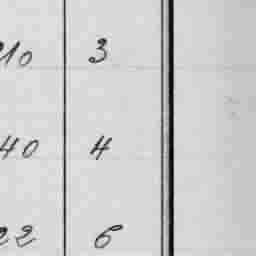 10 3
40 4
22 6